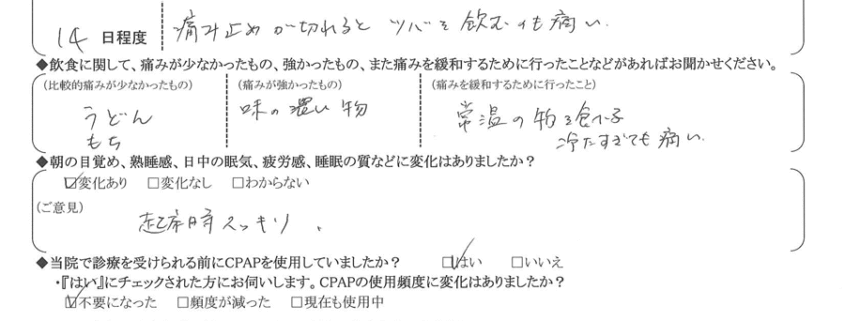 14 日程度 痛み止めが切れると ツバを飲むのも痛い.
◆飲食に関して、痛みが少なかったもの、強かったもの、また痛みを緩和するために行ったことなどがあればお聞かせください。
(比較的痛みが少なかったもの) (痛みが強かったもの) (痛みを緩和するために行ったこと)
うどん 味の濃い物 常温の物を食べる
もち 冷たすぎても痛い.
◆朝の目覚め、熟睡感、日中の眠気、疲労感、睡眠の質などに変化はありましたか?
☑変化あり □変化なし □わからない
(ご意見)
起床時スッキリ.
◆当院で診療を受けられる前にCPAPを使用していましたか? ☑はい □いいえ
・『はい』にチェックされた方にお伺いします。CPAPの使用頻度に変化はありましたか?
☑不要になった □頻度が減った □現在も使用中